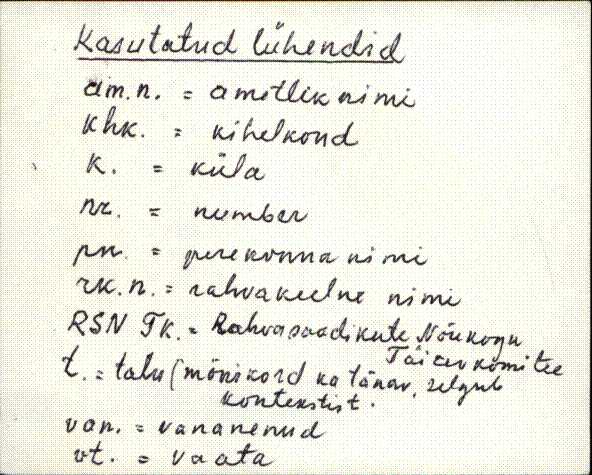 Kasutatud lühendid
am.n. = ametlik nimi
khk. = kihelkond
k. = küla
nr. = number
pn. = perekonna nimi
rk.n. = rahvakeelne nimi
RSN Tk. = Rahvasaadikute Nõukogu
Täitevkomitee
t. = talu (mõnikord ka tänav, selgub
kontekstist.
van. = vananenud
vt. = vaata